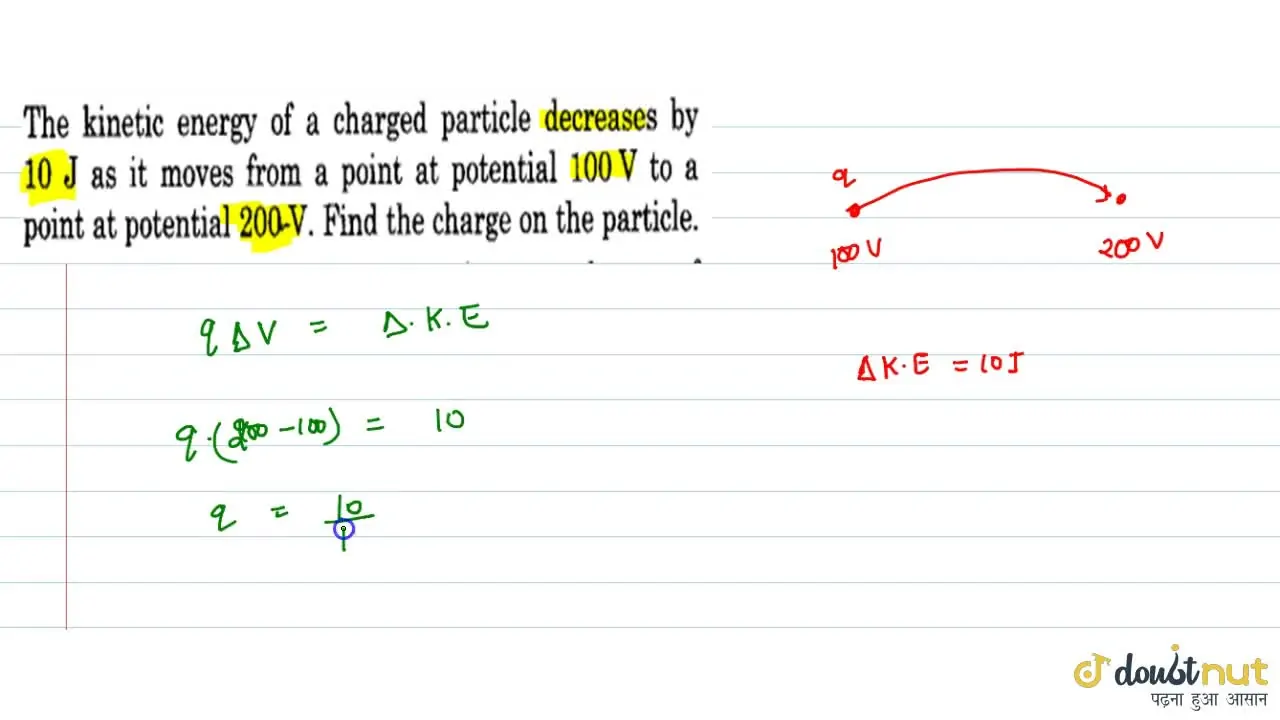 The kinetic energy of a charged particle decreases by
10 J as it moves from a point at potential 100 V to a
point at potential 200 V. Find the charge on the particle.
q
100 V
200 V
q Δ V = Δ. K. E
Δ K. E = 10 J
q. (200 - 100) = 10
q = 10/1
doubtnut
पढ़ना हुआ आसान